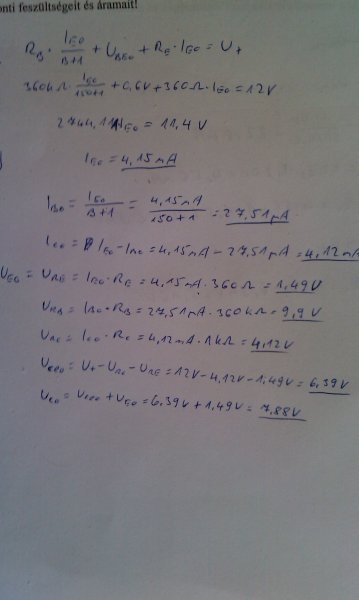 onti feszültségeit és áramait!
R_B · I_E0/(B+1) + U_BE0 + R_E · I_E0 = U_+
360kΩ · I_E0/(150+1) + 0,6V + 360Ω · I_E0 = 12V
2744,11 I_E0 = 11,4V
I_E0 = 4,15mA
I_B0 = I_E0/(B+1) = 4,15mA/(150+1) = 27,51μA
I_C0 = I_E0 - I_B0 = 4,15mA - 27,51μA = 4,12mA
U_E0 = U_RE = I_E0 · R_E = 4,15mA · 360Ω = 1,49V
U_RB = I_B0 · R_B = 27,51μA · 360kΩ = 9,9V
U_RC = I_C0 · R_C = 4,12mA · 1kΩ = 4,12V
U_CE0 = U_+ - U_RC - U_RE = 12V - 4,12V - 1,49V = 6,39V
U_C0 = U_CE0 + U_E0 = 6,39V + 1,49V = 7,88V